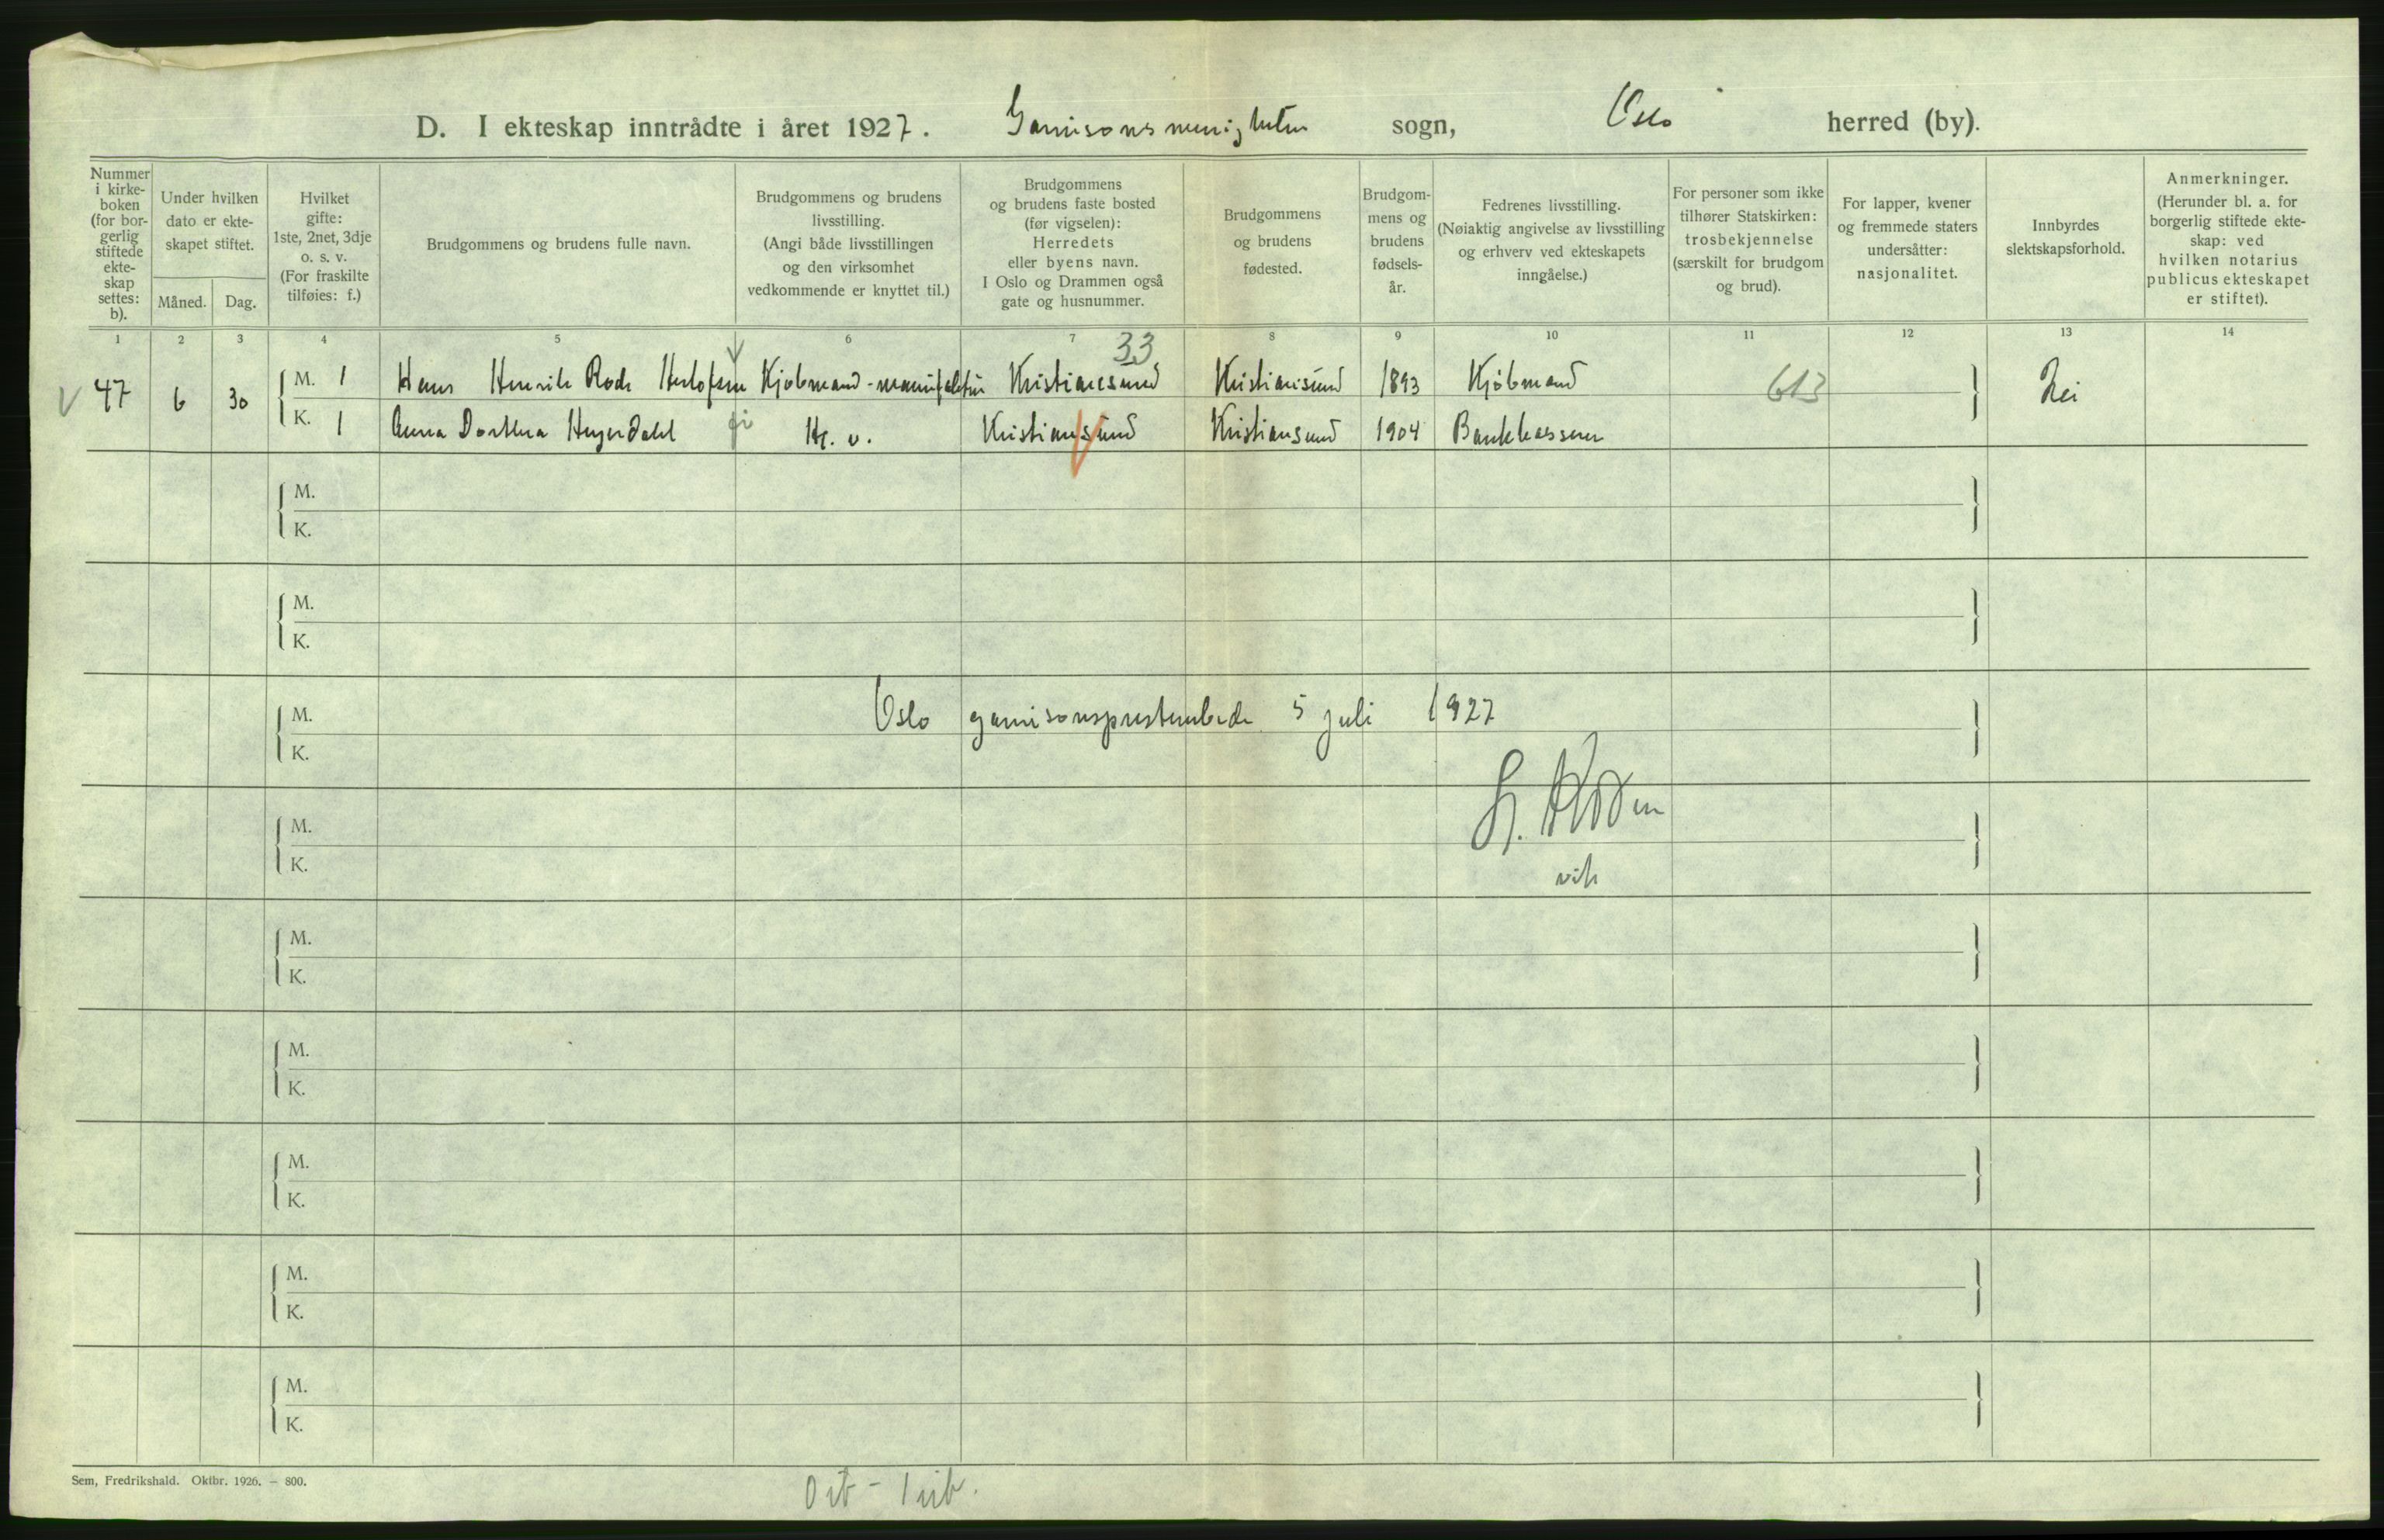 D. I ekteskap inntrådte i året 1927. Garnisonsmenigheten sogn, Oslo herred (by).
Nummer i kirke- boken (for bor- gerlig stiftede ekte- skap settes: b).
Under hvilken dato er ekte- skapet stiftet.
Måned. Dag.
Hvilket gifte: 1ste, 2net, 3dje o. s. v. (For fraskilte tilføies: f.)
Brudgommens og brudens fulle navn.
Brudgommens og brudens livsstilling. (Angi både livsstillingen og den virksomhet vedkommende er knyttet til.)
Brudgommens og brudens faste bosted (før vigselen): Herredets eller byens navn. I Oslo og Drammen også gate og husnummer.
Brudgommens og brudens fødested.
Brudgom- mens og brudens fødsels- år.
Fedrenes livsstilling. (Nøiaktig angivelse av livsstilling og erhverv ved ekteskapets inngåelse.)
For personer som ikke tilhører Statskirken: trosbekjennelse (særskilt for brudgom og brud).
For lapper, kvener og fremmede staters undersåtter: nasjonalitet.
Innbyrdes slektskapsforhold.
Anmerkninger. (Herunder bl. a. for borgerlig stiftede ekte- skap: ved hvilken notarius publicus ekteskapet er stiftet).
1 2 3 4 5 6 7 8 9 10 11 12 13 14
33
47 6 30 M. 1 Hans Henrik Rode Herlofsen Kjøbmand - manufaktur Kristiansund Kristiansund 1893 Kjøbmand 613 Nei
K. 1 Anna Dorthea Heyerdahl Hj. v. Kristiansund Kristiansund 1904 Bankkasserer
M.
K.
M.
K.
M.
Oslo garnisonsprestembede 5 juli 1927
K.
M.
K.
vik
M.
K.
M.
K.
M.
K.
M.
K.
M.
K.
Sem, Fredrikshald. Oktbr. 1926. — 800.